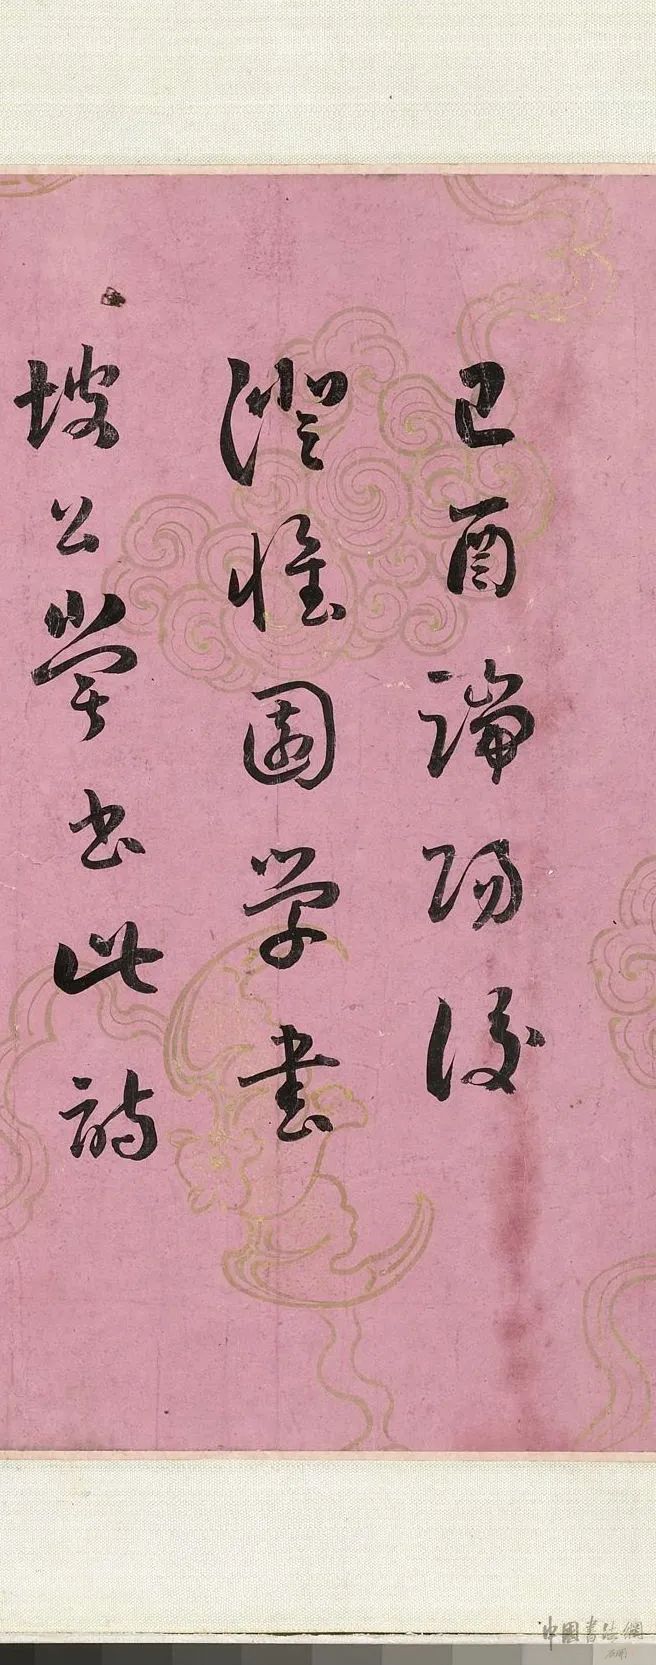 己酉端陽後
澄懷園學書
坡公嘗書此詩
中國書法網